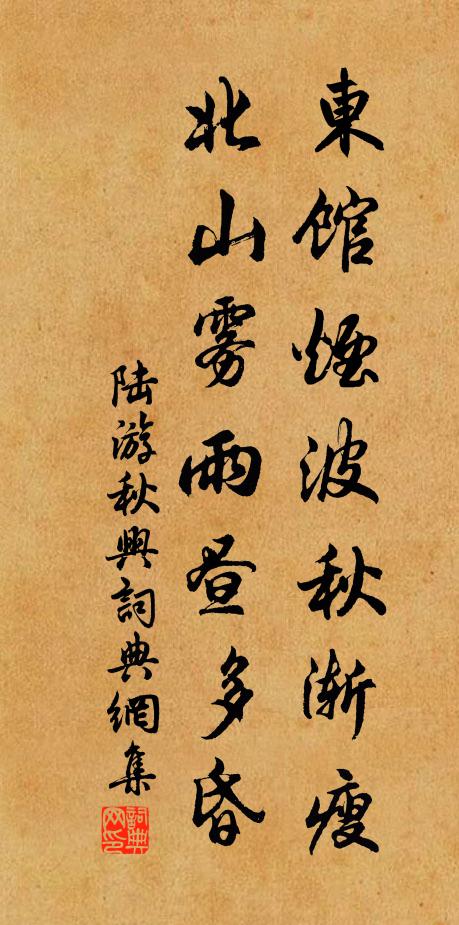 東館煙波秋漸瘦
北山雾雨昼多昏
陆游秋興詞典網集
詞典网印